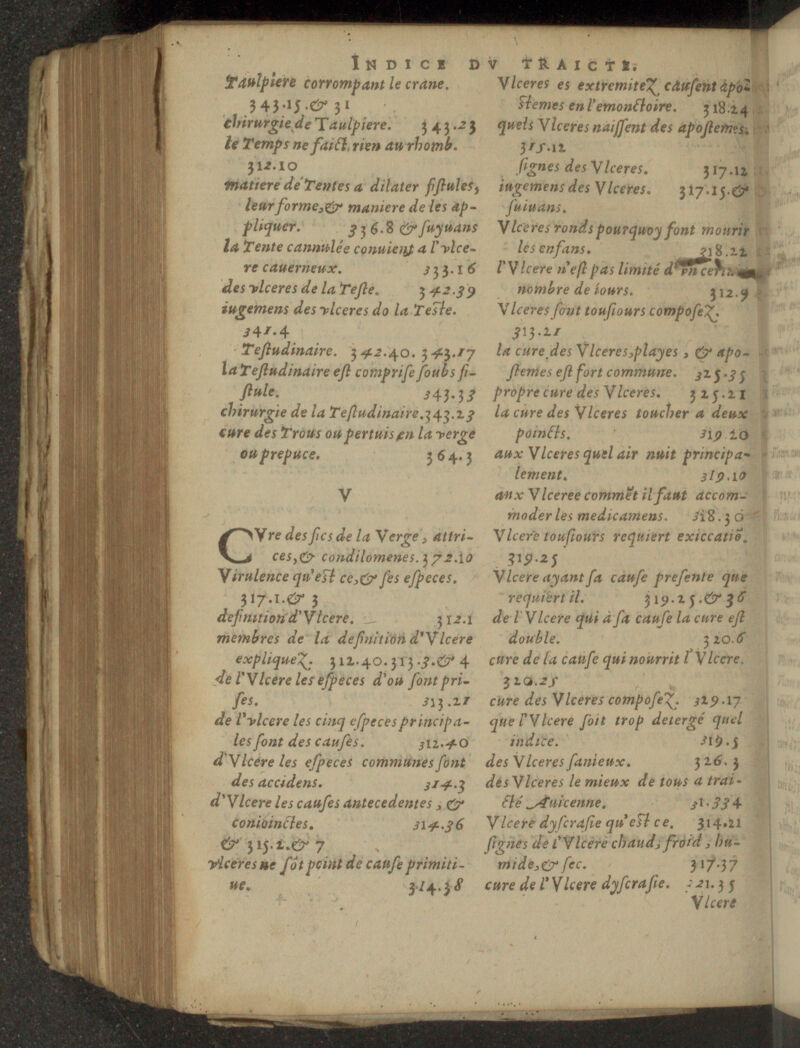 INDICE DV TRAICTE,
Taulpiere corrompant le crane.
343.15.& 31
chirurgie de Taulpiere. 343.23
le Temps ne faict rien au rhomb.
312.10
matiere de Tentes a dilater fistules,
leur forme,& maniere de les ap-
pliquer. 336.8 & suyuans
la Tente cannulée conuient a l'vlce-
re cauerneux. 333.16
des vlceres de la Teste. 342.39
iugemens des vlceres do la Teste.
341.4
Testudinaire. 342.40. 343.17
la Testudinaire est comprise soubs fi-
stule. 343.33
chirurgie de la Testudinaire.343.23
cure des Trous ou pertuis en la verge
ou prepuce. 364.3
V
CVre des fics de la Verge, attri-
ces,& condilomenes. 372.10
Virulence qu'est ce,& ses especes.
317.1.& 3
definition d'Vlcere. 312.1
membres de la definition d'Vlcere
expliquez. 312.40.313.3.& 4
de l'Vlcere les especes d'ou sont pri-
ses. 313.21
de l'vlcere les cinq especes principa-
les sont des causes. 312.40
d'Vlcere les especes communes sont
des accidens. 314.3
d'Vlcere les causes antecedentes, &
conioinctes. 314.36
& 315.1.& 7
vlceres ne sōt point de cause primiti-
ue. 314.38
Vlceres es extremitez causent apo-
stemes en l'emonctoire. 318.24
quels Vlceres naissent des apostemes.
315.12
signes des Vlceres. 317.12
iugemens des Vlceres. 317.15.&
suiuans.
Vlceres ronds pourquoy font mourir
les enfans. 318.22
l'Vlcere n'est pas limité d'vn certain
nombre de iours. 312.9
Vlceres sont tousiours composez.
313.21
la cure des Vlceres,playes, & apo-
stemes est fort commune. 325.35
propre cure des Vlceres. 325.21
la cure des Vlceres toucher a deux
poincts. 319 20
aux Vlceres quel air nuit principa-
lement. 319.10
aux Vlceree commēt il faut accom-
moder les medicamens. 318.30
Vlcere tousiours requiert exiccatiō.
319.25
Vlcere ayant sa cause presente que
requiert il. 319.25.& 36
de l'Vlcere qui a sa cause la cure est
double. 320.6
cure de la cause qui nourrit l'Vlcere.
320.25
cure des Vlceres composez. 329.17
que l'Vlcere soit trop detergé quel
indice. 319.5
des Vlceres sanieux. 326.3
des Vlceres le mieux de tous a trai-
cté Auicenne. 31.334
Vlcere dyscrasie qu'est ce. 314.21
signes de l'Vlcere chaud, froid, hu-
mide,& sec. 317.37
cure de l'Vlcere dyscrasie. 321.35
Vlcere